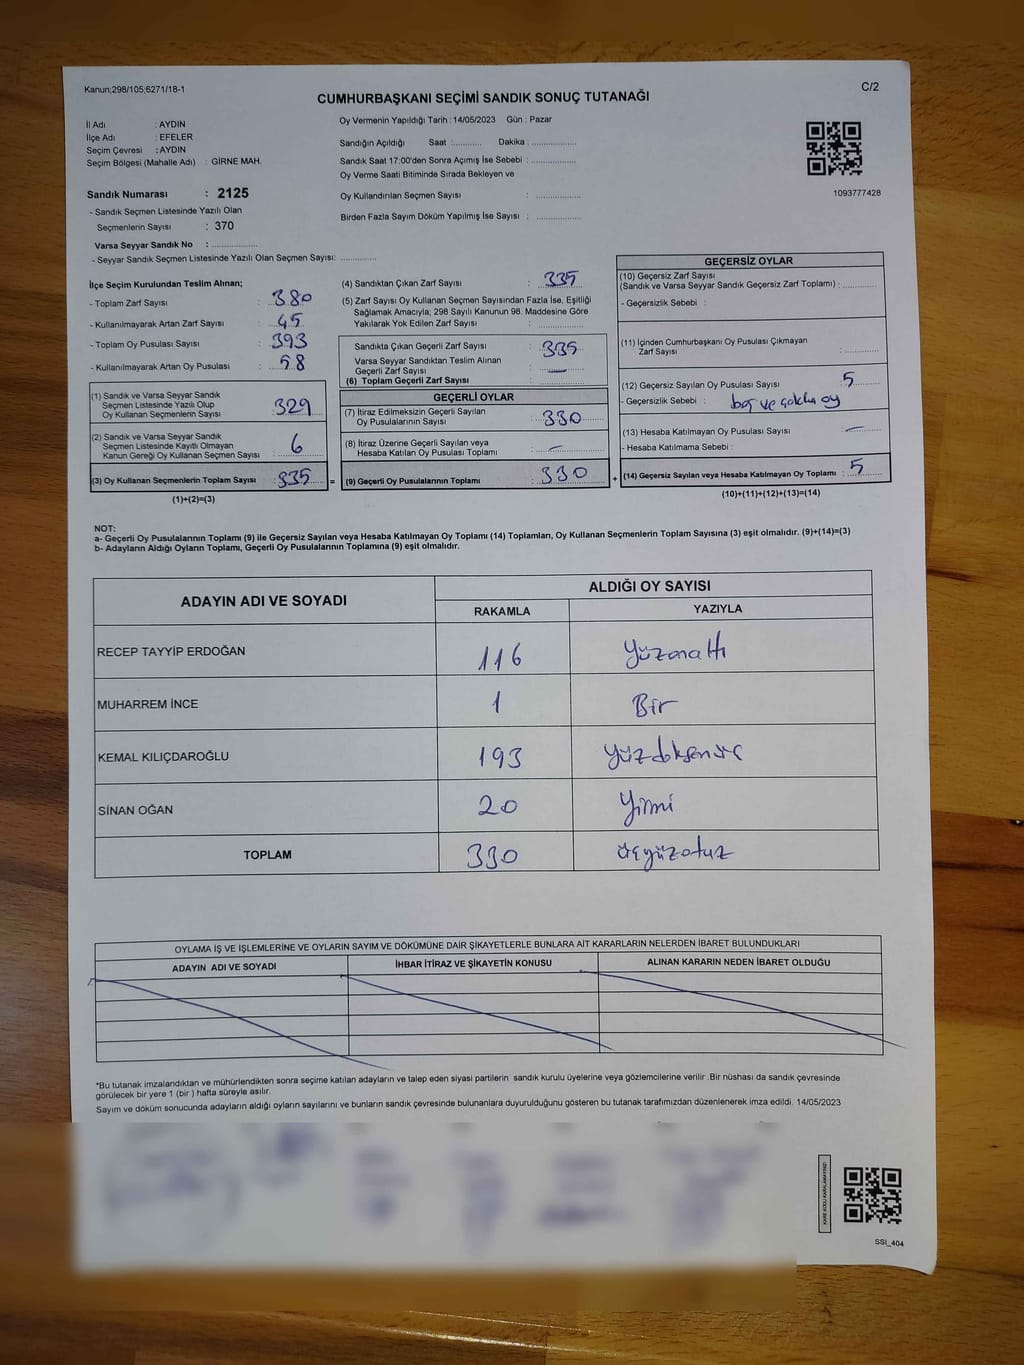 Kanun;298/105;6271/18-1
C/2
CUMHURBAŞKANI SEÇİMİ SANDIK SONUÇ TUTANAĞI
İl Adı : AYDIN
İlçe Adı : EFELER
Seçim Çevresi : AYDIN
Seçim Bölgesi (Mahalle Adı) : GİRNE MAH.
Sandık Numarası : 2125
- Sandık Seçmen Listesinde Yazılı Olan
Seçmenlerin Sayısı : 370
Varsa Seyyar Sandık No : ................
- Seyyar Sandık Seçmen Listesinde Yazılı Olan Seçmen Sayısı: ............
Oy Vermenin Yapıldığı Tarih : 14/05/2023 Gün : Pazar
Sandığın Açıldığı Saat :.......... Dakika :...............
Sandık Saat 17:00'den Sonra Açımış İse Sebebi :...............
Oy Verme Saati Bitiminde Sırada Bekleyen ve
Oy Kullandırılan Seçmen Sayısı : ...............
Birden Fazla Sayım Döküm Yapılmış İse Sayısı : ...............
1093777428
İlçe Seçim Kurulundan Teslim Alınan;
- Toplam Zarf Sayısı : 380
- Kullanılmayarak Artan Zarf Sayısı : 45
- Toplam Oy Pusulası Sayısı : 393
- Kullanılmayarak Artan Oy Pusulası : 58
(1) Sandık ve Varsa Seyyar Sandık
Seçmen Listesinde Yazılı Olup
Oy Kullanan Seçmenlerin Sayısı : 329
(2) Sandık ve Varsa Seyyar Sandık
Seçmen Listesinde Kayıtlı Olmayan
Kanun Gereği Oy Kullanan Seçmen Sayısı : 6
(3) Oy Kullanan Seçmenlerin Toplam Sayısı : 335 =
(1)+(2)=(3)
(4) Sandıktan Çıkan Zarf Sayısı : 335
(5) Zarf Sayısı Oy Kullanan Seçmen Sayısından Fazla İse, Eşitliği
Sağlamak Amacıyla; 298 Sayılı Kanunun 98. Maddesine Göre
Yakılarak Yok Edilen Zarf Sayısı : ...............
Sandıkta Çıkan Geçerli Zarf Sayısı : 335
Varsa Seyyar Sandıktan Teslim Alınan
Geçerli Zarf Sayısı : —
(6) Toplam Geçerli Zarf Sayısı : ...............
GEÇERLİ OYLAR
(7) İtiraz Edilmeksizin Geçerli Sayılan
Oy Pusulalarının Sayısı : 330
(8) İtiraz Üzerine Geçerli Sayılan veya
Hesaba Katılan Oy Pusulası Toplamı : —
(9) Geçerli Oy Pusulalarının Toplamı : 330 +
GEÇERSİZ OYLAR
(10) Geçersiz Zarf Sayısı
(Sandık ve Varsa Seyyar Sandık Geçersiz Zarf Toplamı) : ............
- Geçersizlik Sebebi :
(11) İçinden Cumhurbaşkanı Oy Pusulası Çıkmayan
Zarf Sayısı : ............
(12) Geçersiz Sayılan Oy Pusulası Sayısı : 5
- Geçersizlik Sebebi : boş ve çoklu oy
(13) Hesaba Katılmayan Oy Pusulası Sayısı : —
- Hesaba Katılmama Sebebi :
(14) Geçersiz Sayılan veya Hesaba Katılmayan Oy Toplamı : 5
(10)+(11)+(12)+(13)=(14)
NOT:
a- Geçerli Oy Pusulalarının Toplamı (9) ile Geçersiz Sayılan veya Hesaba Katılmayan Oy Toplamı (14) Toplamları, Oy Kullanan Seçmenlerin Toplam Sayısına (3) eşit olmalıdır. (9)+(14)=(3)
b- Adayların Aldığı Oyların Toplamı, Geçerli Oy Pusulalarının Toplamına (9) eşit olmalıdır.
ADAYIN ADI VE SOYADI ALDIĞI OY SAYISI
RAKAMLA YAZIYLA
RECEP TAYYİP ERDOĞAN 116 Yüzonaltı
MUHARREM İNCE 1 Bir
KEMAL KILIÇDAROĞLU 193 Yüzdoksanüç
SİNAN OĞAN 20 Yirmi
TOPLAM 330 üçyüzotuz
OYLAMA İŞ VE İŞLEMLERİNE VE OYLARIN SAYIM VE DÖKÜMÜNE DAİR ŞİKAYETLERLE BUNLARA AİT KARARLARIN NELERDEN İBARET BULUNDUKLARI
ADAYIN ADI VE SOYADI İHBAR İTİRAZ VE ŞİKAYETİN KONUSU ALINAN KARARIN NEDEN İBARET OLDUĞU
*Bu tutanak imzalandıktan ve mühürlendikten sonra seçime katılan adayların ve talep eden siyasi partilerin sandık kurulu üyelerine veya gözlemcilerine verilir .Bir nüshası da sandık çevresinde
görülecek bir yere 1 (bir ) hafta süreyle asılır.
Sayım ve döküm sonucunda adayların aldığı oyların sayılarını ve bunların sandık çevresinde bulunanlara duyurulduğunu gösteren bu tutanak tarafımızdan düzenlenerek imza edildi. 14/05/2023
KARE KODU KARALAMAYINIZ!
SSI_404